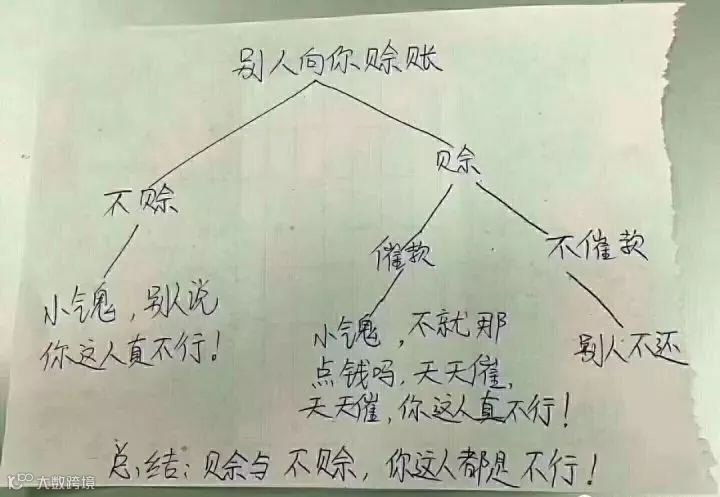 别人向你赊账
赊
不赊
催款
不催款
小气鬼,别人说
你这人真不行!
小气鬼,不就那
点钱吗,天天催,
天天催,你这人真不行!
别人不还
总结:赊与不赊,你这人都是不行!
大数跨境